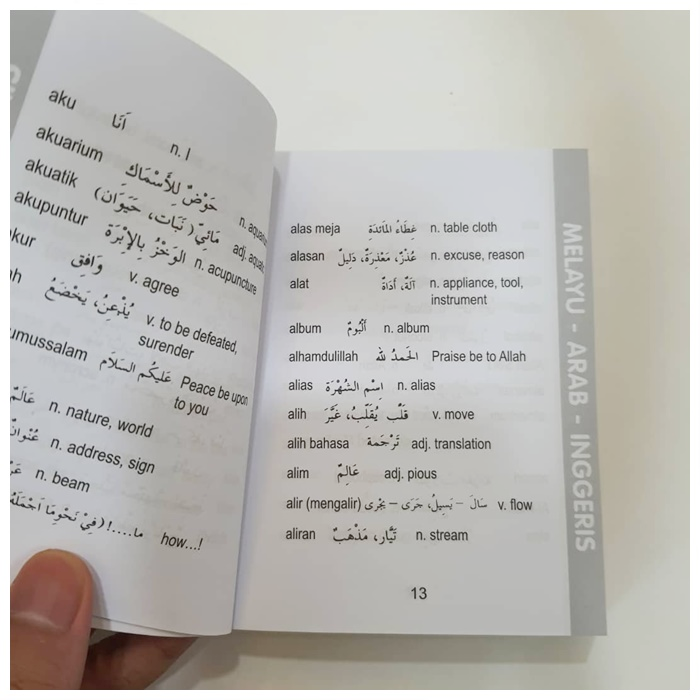 aku أَنَا n. I
akuarium حَوْضٌ لِلأَسْمَاك n.
akuatik مَائِيّ( نَبَات، حَيَوَان) adj.
akupuntur الوَخْزُ بِالإِبْرَة n. acupuncture
وَافَق v. agree
يُذْعِنُ، يَخْضَعُ v. to be defeated,
surender
عَلَيكُم السَّلَام Peace be upon
to you
عَالَمٌ n. nature, world
n. address, sign
n. beam
ما....!( how...!
alas meja غِطَاءُ المَائدَةِ n. table cloth
alasan عُذْرٌ، مَعْذِرَةٌ، دَلِيلٌ n. excuse, reason
alat آلَةٌ، أَدَاةٌ n. appliance, tool,
instrument
album أَلْبُومٌ n. album
alhamdulillah الحَمدُ لله Praise be to Allah
alias اِسْم الشُهْرَة n. alias
alih قَلَّب يُقَلِّبُ، غَيَّرَ v. move
alih bahasa تَرْجَمة adj. translation
alim عَالِمٌ adj. pious
alir (mengalir) سَالَ – يَسِيلُ، جَرَى – يَجْرِى v. flow
aliran تَيَّار، مَذْهَبٌ n. stream
13
MELAYU - ARAB - INGGERIS